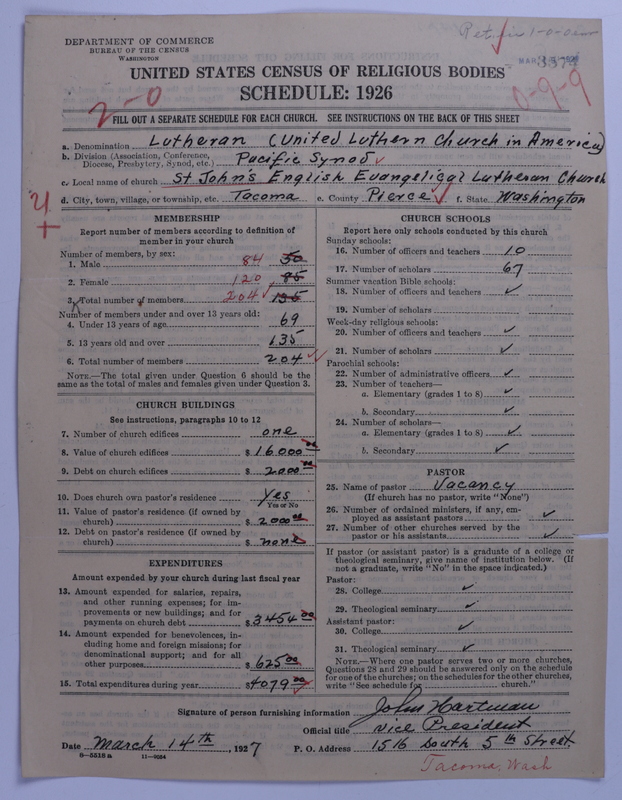 DEPARTMENT OF COMMERCE
BUREAU OF THE CENSUS
WASHINGTON
3374
UNITED STATES CENSUS OF RELIGIOUS BODIES
SCHEDULE: 1926
2-0
0-9-9
FILL OUT A SEPARATE SCHEDULE FOR EACH CHURCH. SEE INSTRUCTIONS ON THE BACK OF THIS SHEET
a. Denomination Lutheran (United Luthern Church in America)
b. Division (Association, Conference, Diocese, Presbytery, Synod, etc.) Pacific Synod ✓
c. Local name of church St John's English Evangelical Lutheran Church
d. City, town, village, or township, etc. Tacoma e. County Pierce f. State Washington
MEMBERSHIP
Report number of members according to definition of
member in your church
Number of members, by sex:
1. Male 84 50
2. Female 120 85
3. Total number of members 204 135
Number of members under and over 13 years old:
4. Under 13 years of age 69
5. 13 years old and over 135
6. Total number of members 204
NOTE.—The total given under Question 6 should be the
same as the total of males and females given under Question 3.
CHURCH BUILDINGS
See instructions, paragraphs 10 to 12
7. Number of church edifices one
8. Value of church edifices $ 16000 00
9. Debt on church edifices $ 2000 00
10. Does church own pastor's residence Yes
Yes or No
11. Value of pastor's residence (if owned by
church) $ 2000 00
12. Debt on pastor's residence (if owned by
church) $ none
EXPENDITURES
Amount expended by your church during last fiscal year
13. Amount expended for salaries, repairs,
and other running expenses; for im-
provements or new buildings; and for
payments on church debt $ 3454 00
14. Amount expended for benevolences, in-
cluding home and foreign missions; for
denominational support; and for all
other purposes $ 625 00
15. Total expenditures during year $ 4079 00
CHURCH SCHOOLS
Report here only schools conducted by this church
Sunday schools:
16. Number of officers and teachers 10
17. Number of scholars 67
Summer vacation Bible schools:
18. Number of officers and teachers ✓
19. Number of scholars
Week-day religious schools:
20. Number of officers and teachers ✓
21. Number of scholars ✓
Parochial schools:
22. Number of administrative officers ✓
23. Number of teachers—
a. Elementary (grades 1 to 8) ✓
b. Secondary ✓
24. Number of scholars—
a. Elementary (grades 1 to 8) ✓
b. Secondary ✓
PASTOR
25. Name of pastor Vacancy
(If church has no pastor, write "None")
26. Number of ordained ministers, if any, em-
ployed as assistant pastors ✓
27. Number of other churches served by the
pastor or his assistants ✓
If pastor (or assistant pastor) is a graduate of a college or
theological seminary, give name of institution below. (If
not a graduate, write "No" in the space indicated.)
Pastor:
28. College ✓
29. Theological seminary ✓
Assistant pastor:
30. College ✓
31. Theological seminary ✓
NOTE.—Where one pastor serves two or more churches,
Questions 28 and 29 should be answered only on the schedule
for one of the churches; on the schedules for the other churches,
write "See schedule for church."
Signature of person furnishing information John Hartman
Official title Vice President
Date March 14th, 1927 P. O. Address 1516 South 5th Street.
8-5518a 11-9024
Tacoma, Wash